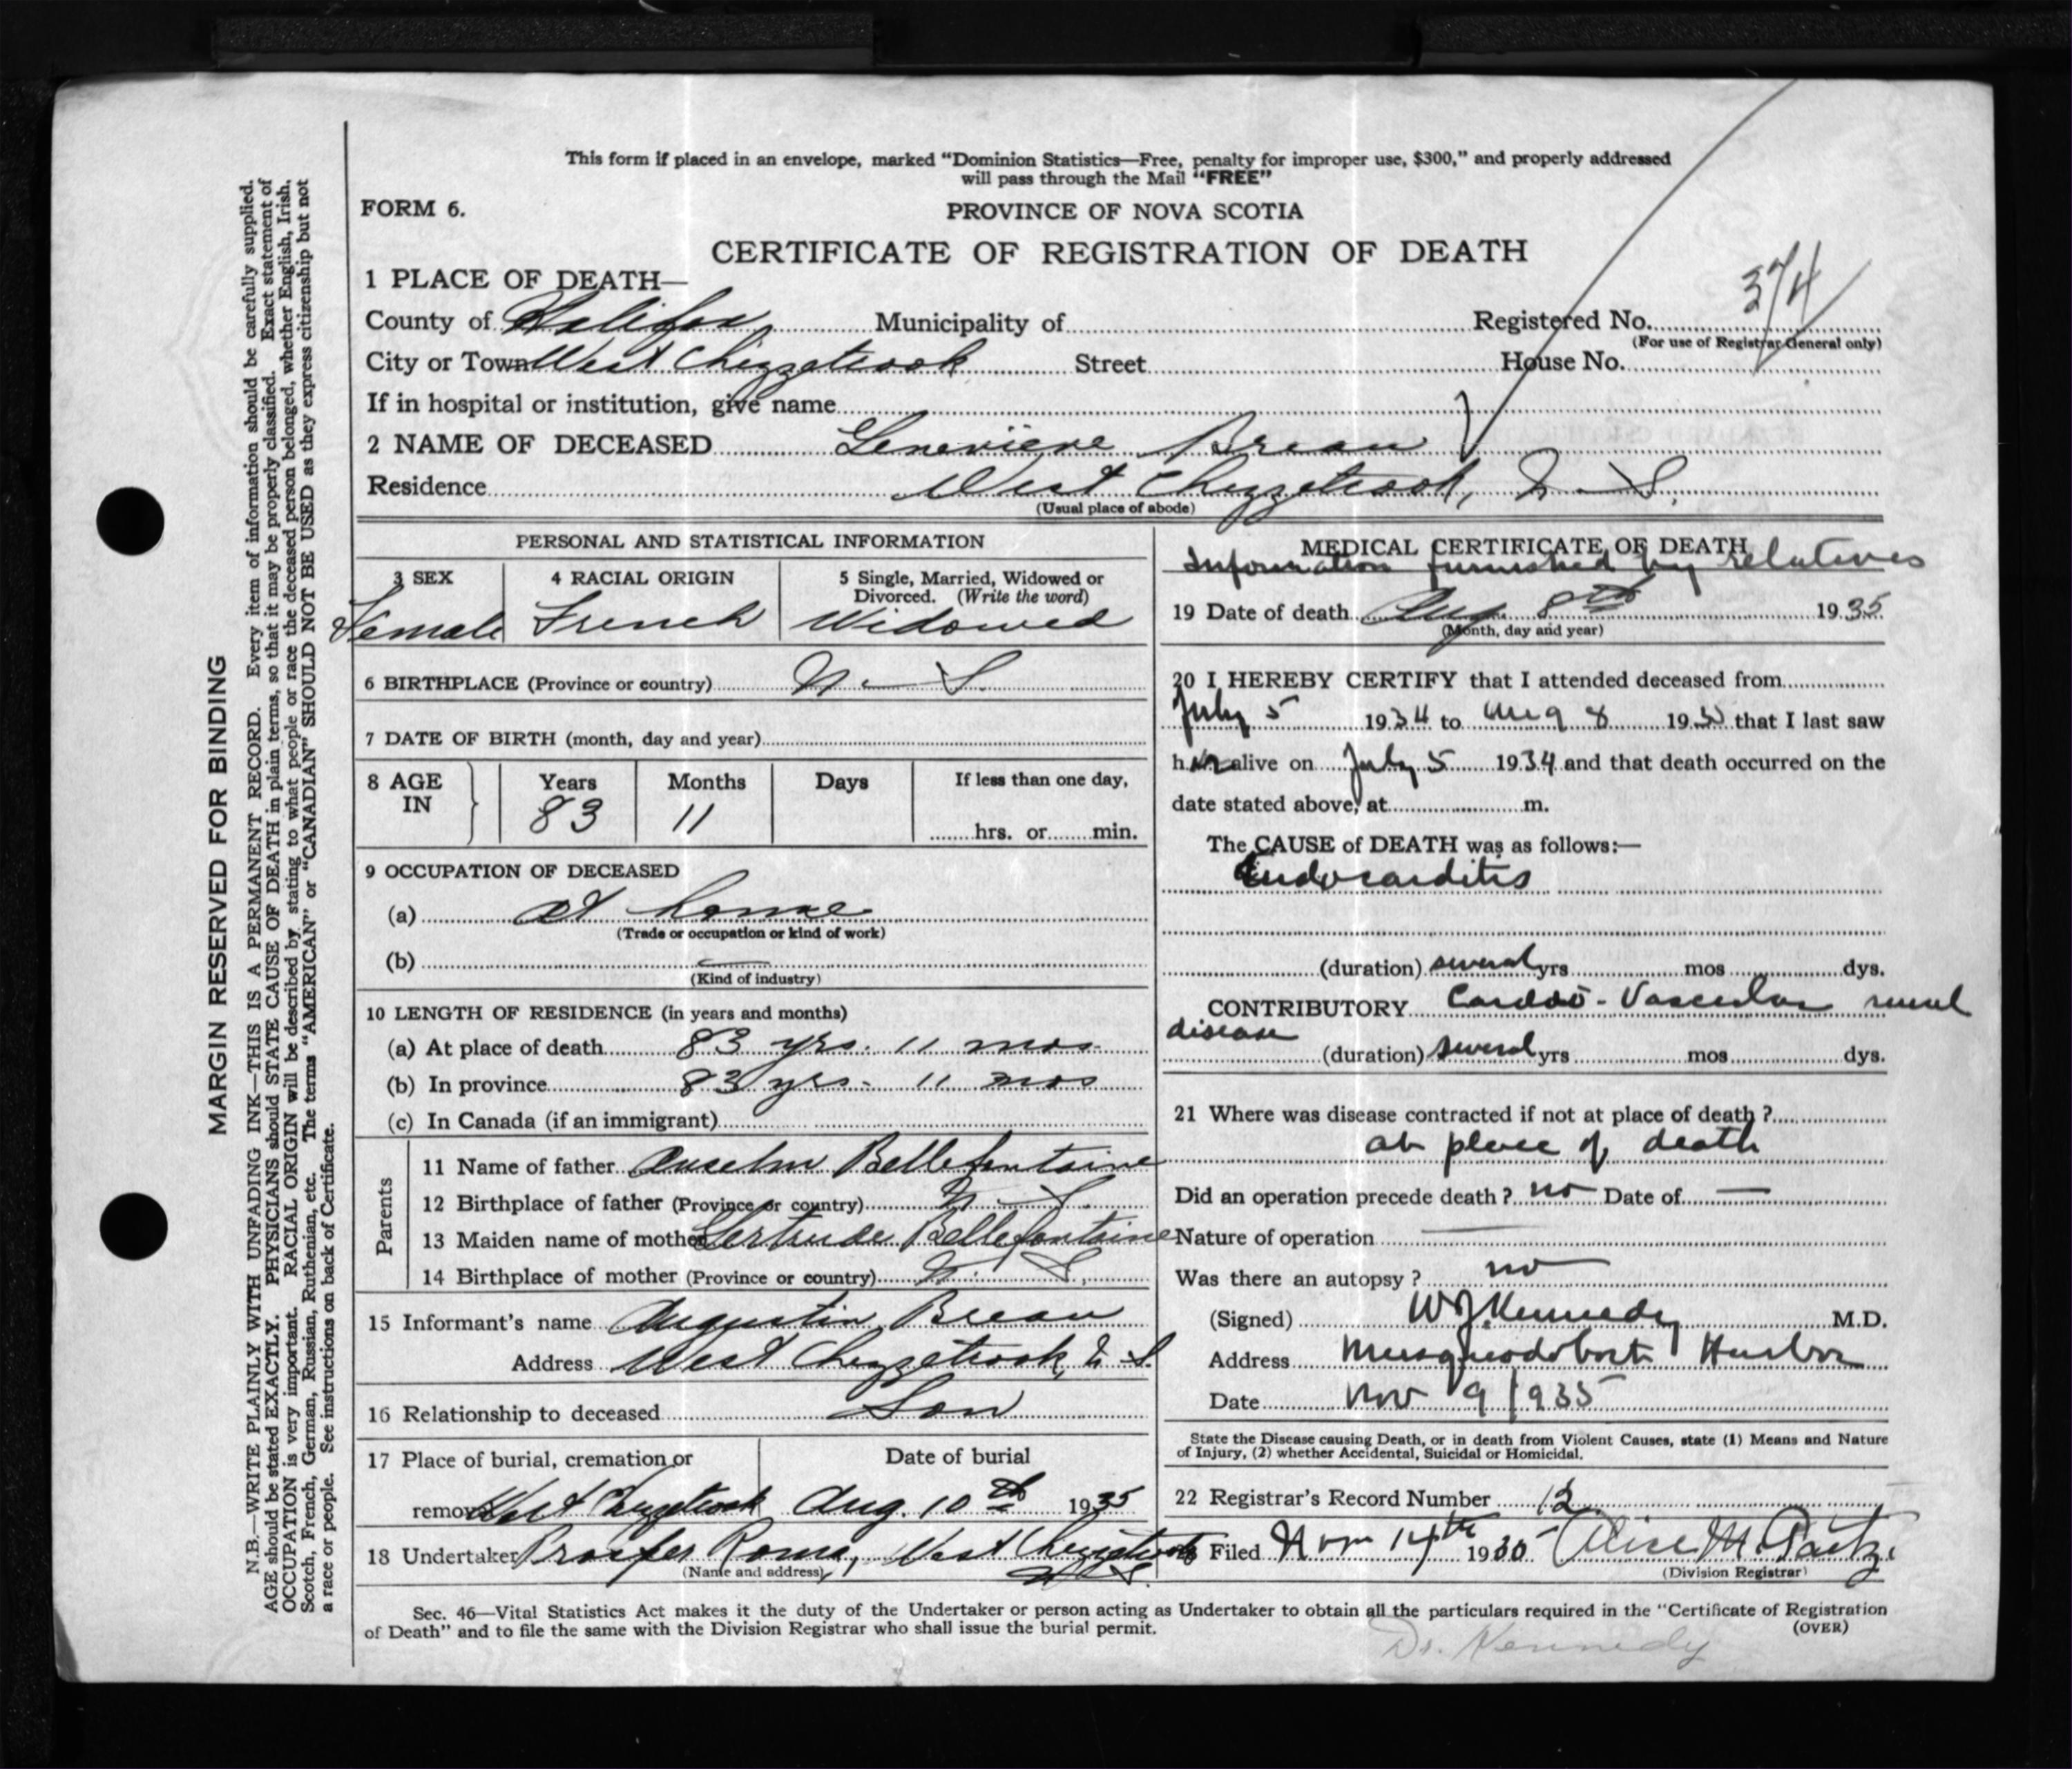 This form if placed in an envelope, marked "Dominion Statistics—Free, penalty for improper use, $300," and properly addressed
will pass through the Mail "FREE"
FORM 6.
PROVINCE OF NOVA SCOTIA
CERTIFICATE OF REGISTRATION OF DEATH
1 PLACE OF DEATH—
374
County of Halifax Municipality of Registered No.
(For use of Registrar General only)
City or Town West Chezzetcook Street House No.
If in hospital or institution, give name
2 NAME OF DECEASED Genevieve Breau
Residence West Chezzetcook, N. S.
(Usual place of abode)
PERSONAL AND STATISTICAL INFORMATION
3 SEX 4 RACIAL ORIGIN 5 Single, Married, Widowed or
Divorced. (Write the word)
Female French Widowed
6 BIRTHPLACE (Province or country) N. S.
7 DATE OF BIRTH (month, day and year)
8 AGE IN Years Months Days If less than one day,
83 11 hrs. or min.
9 OCCUPATION OF DECEASED
(a) at home
(Trade or occupation or kind of work)
(b) —
(Kind of industry)
10 LENGTH OF RESIDENCE (in years and months)
(a) At place of death 83 yrs. 11 mos.
(b) In province 83 yrs. 11 mos
(c) In Canada (if an immigrant)
Parents
11 Name of father Anselm Bellefontaine
12 Birthplace of father (Province or country) N. S.
13 Maiden name of mother Gertrude Bellefontaine
14 Birthplace of mother (Province or country) N. S.
15 Informant's name Augustin Breau
Address West Chezzetcook, N. S.
16 Relationship to deceased Son
17 Place of burial, cremation or Date of burial
removal West Chezzetcook Aug. 10th 1935
18 Undertaker Prosper Roma, West Chezzetcook
(Name and address) N. S.
MEDICAL CERTIFICATE OF DEATH
Information furnished by relatives
19 Date of death Aug. 8th 1935
(Month, day and year)
20 I HEREBY CERTIFY that I attended deceased from
July 5 1934 to Aug 8 1935 that I last saw
her alive on July 5 1934 and that death occurred on the
date stated above, at m.
The CAUSE of DEATH was as follows:—
Endocarditis
(duration) several yrs mos dys.
CONTRIBUTORY Cardio-Vascular renal
disease
(duration) several yrs mos dys.
21 Where was disease contracted if not at place of death ?
at place of death
Did an operation precede death ? no Date of —
Nature of operation —
Was there an autopsy ? no
(Signed) W J Kennedy M.D.
Address Musquodoboit Harbor
Date Nov 9 / 935
State the Disease causing Death, or in death from Violent Causes, state (1) Means and Nature
of Injury, (2) whether Accidental, Suicidal or Homicidal.
22 Registrar's Record Number 12
Filed Nov 14th 1935 Alice M.
(Division Registrar)
Sec. 46—Vital Statistics Act makes it the duty of the Undertaker or person acting as Undertaker to obtain all the particulars required in the "Certificate of Registration
of Death" and to file the same with the Division Registrar who shall issue the burial permit. (OVER)
Dr. Kennedy
MARGIN RESERVED FOR BINDING
N.B.—WRITE PLAINLY WITH UNFADING INK—THIS IS A PERMANENT RECORD. Every item of information should be carefully supplied.
AGE should be stated EXACTLY. PHYSICIANS should STATE CAUSE OF DEATH in plain terms, so that it may be properly classified. Exact statement of
OCCUPATION is very important. RACIAL ORIGIN will be described by stating to what people or race the deceased person belonged, whether English, Irish,
Scotch, French, German, Russian, Ruthenian, etc. The terms "AMERICAN" or "CANADIAN" SHOULD NOT BE USED as they express citizenship but not
a race or people. See instructions on back of Certificate.